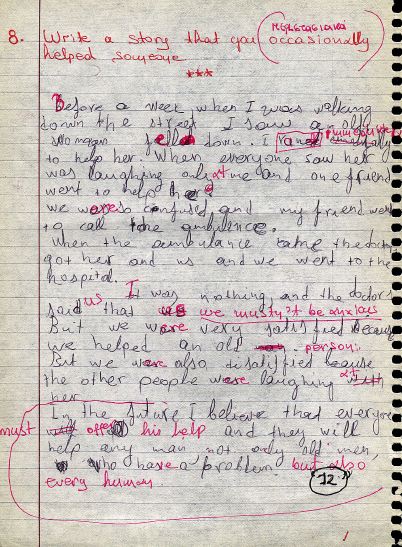 8. Write a story that you occasionally
helped someone
***
Before a week when I was walking
down the street I saw an old
woman fell down. I ran immediately
to help her. When everyone saw her
was laughing only at me and one friend
went to help her
we were confused and my friend went
to call the ambulence.
When the ambulance came the doctor
got her and us and we went to the
hospital.
It was nothing and the doctors
said us that we mustn't be anxious
But we were very satisfied because
we helped an old person.
But we were also disatisfied because
the other people were laughing at
her
In the future I believe that everyone
must offer his help and they will
help any man not only old men,
who have a problem. but also
every human.
12
1